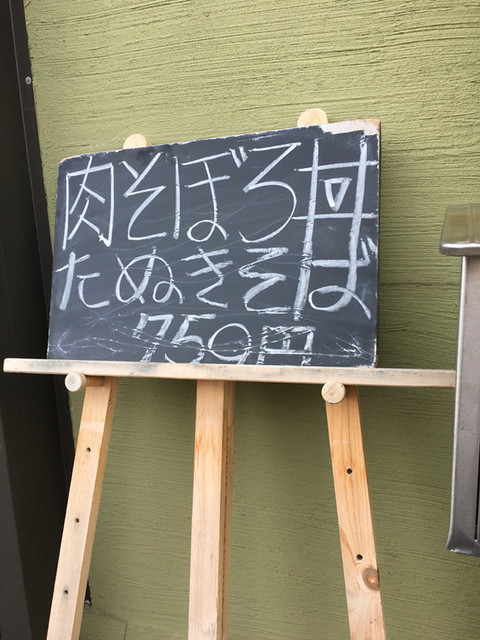 肉そぼろ丼
たぬきそば
750円